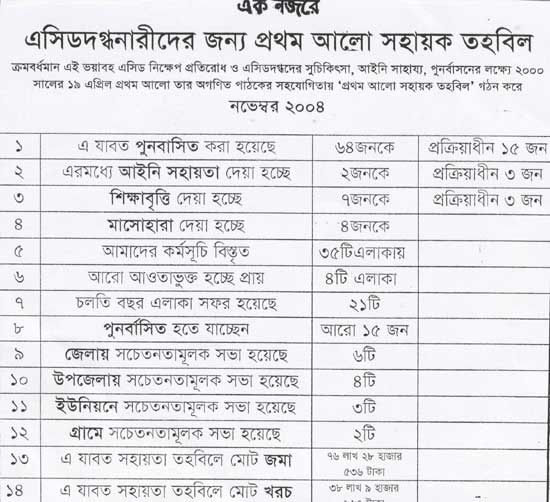 এক নজরে
এসিডদগ্ধনারীদের জন্য প্রথম আলো সহায়ক তহবিল
ক্রমবর্ধমান এই ভয়াবহ এসিড নিক্ষেপ প্রতিরোধ ও এসিডদগ্ধদের সুচিকিৎসা, আইনি সাহায্য, পুনর্বাসনের লক্ষ্যে ২০০০
সালের ১৯ এপ্রিল প্রথম আলো তার অগণিত পাঠকের সহযোগিতায় ‘প্রথম আলো সহায়ক তহবিল’ গঠন করে
নভেম্বর ২০০৪
১ এ যাবত পুনবাসিত করা হয়েছে ৬৪জনকে প্রক্রিয়াধীন ১৫ জন
২ এরমধ্যে আইনি সহায়তা দেয়া হচ্ছে ২জনকে প্রক্রিয়াধীন ৩ জন
৩ শিক্ষাবৃত্তি দেয়া হচ্ছে ৭জনকে প্রক্রিয়াধীন ৩ জন
৪ মাসোহারা দেয়া হচ্ছে ৪জনকে
৫ আমাদের কর্মসূচি বিস্তৃত ৩৫টিএলাকায়
৬ আরো আওতাভুক্ত হচ্ছে প্রায় ৪টি এলাকা
৭ চলতি বছর এলাকা সফর হয়েছে ২১টি
৮ পুনর্বাসিত হতে যাচ্ছেন আরো ১৫ জন
৯ জেলায় সচেতনতামূলক সভা হয়েছে ৬টি
১০ উপজেলায় সচেতনতামূলক সভা হয়েছে ৪টি
১১ ইউনিয়নে সচেতনতামূলক সভা হয়েছে ৩টি
১২ গ্রামে সচেতনতামূলক সভা হয়েছে ২টি
১৩ এ যাবত সহায়তা তহবিলে মোট জমা ৭৬ লাখ ২৮ হাজার
৫৩৬ টাকা
১৪ এ যাবত সহায়তা তহবিলে মোট খরচ ৩৮ লাখ ৯ হাজার